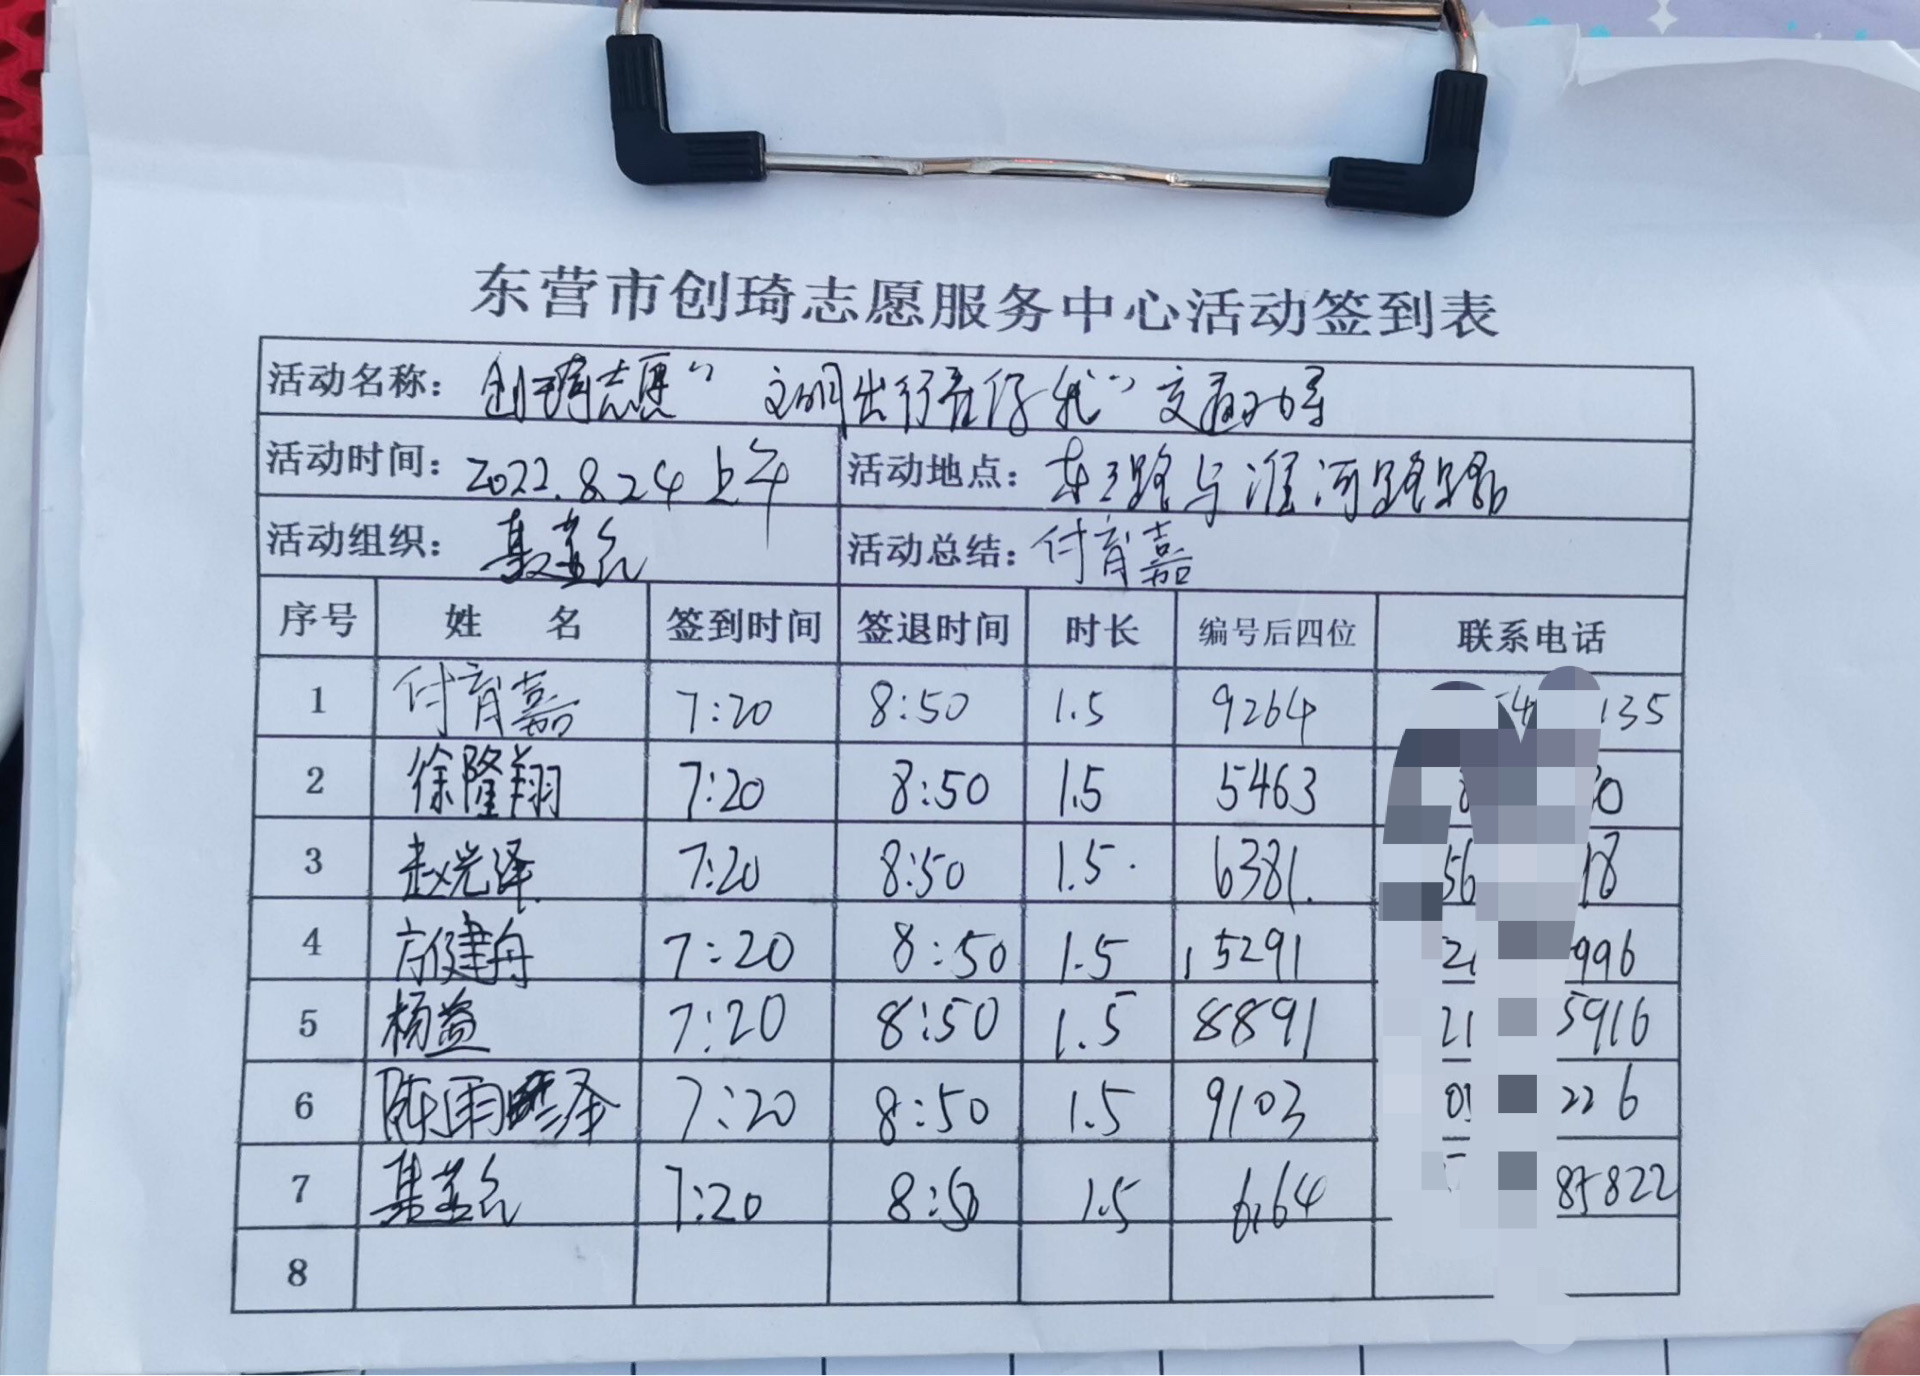 东营市创琦志愿服务中心活动签到表
活动名称：创琦志愿“文明出行有你我”交通劝导
活动时间：2022.8.24上午 活动地点：东三路与淮河路路口
活动组织： 活动总结：付育嘉
序号 姓名 签到时间 签退时间 时长 编号后四位 联系电话
1 付育嘉 7:20 8:50 1.5 9264 135
2 徐隆翔 7:20 8:50 1.5 5463
3 赵光泽 7:20 8:50 1.5 6381 18
4 7:20 8:50 1.5 5291 996
5 杨益 7:20 8:50 1.5 8891 21 5916
6 陈雨泽 7:20 8:50 1.5 9103 226
7 7:20 8:50 1.5 6164 85822
8